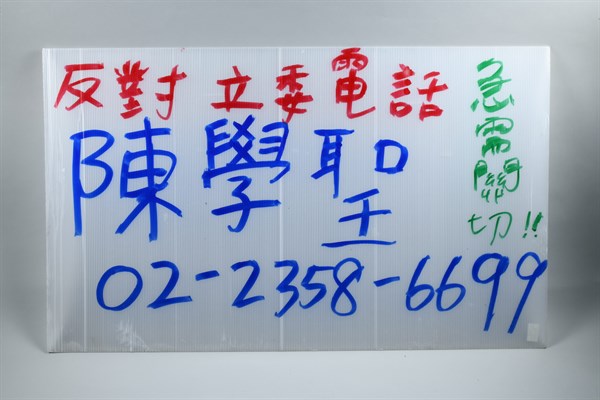 反對 立委電話
陳學聖
02-2358-6699
急需關切!!